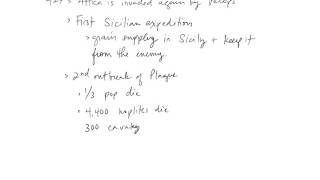 427 > Attica is invaded again by Pelops
> First Sicilian expedition
> grain supplying in Sicily + keep it
from the enemy.
> 2nd outbreak of Plague
• 1/3 pop die
• 4,400 hoplites die
300 cavalry